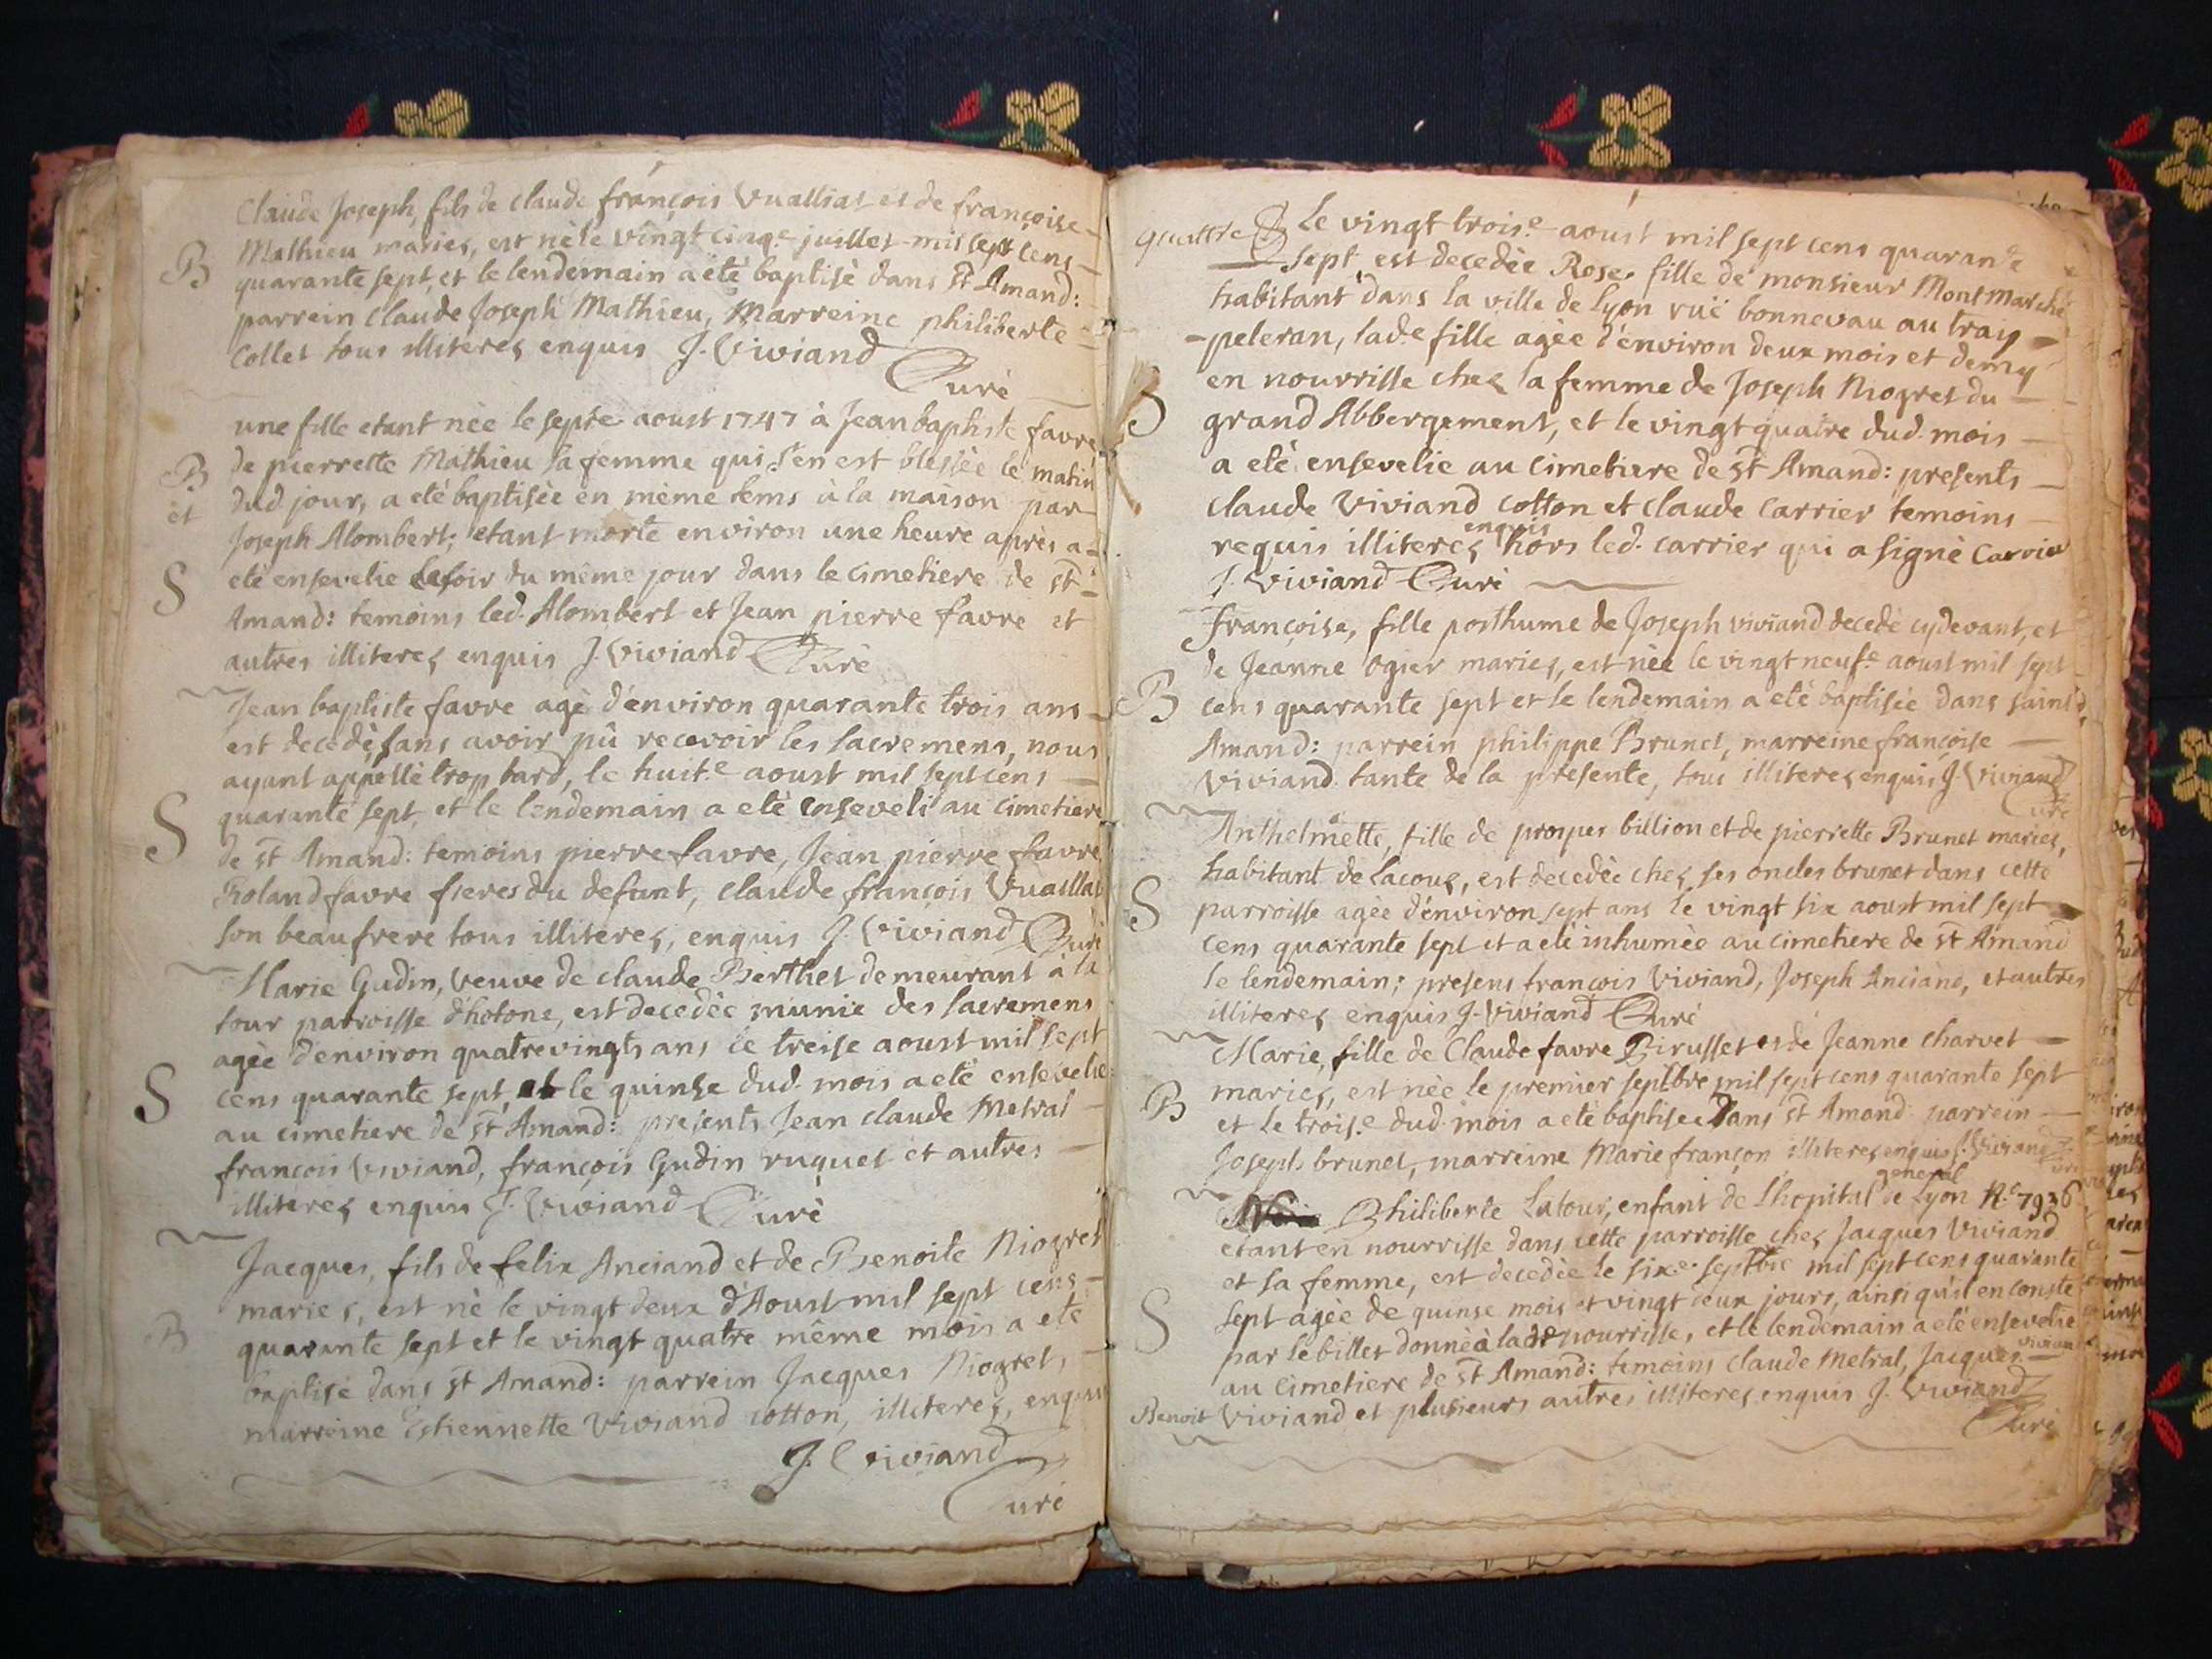 Claude Joseph, fils de claude françois Vualliat et de françoise
Mathieu mariez, est nè le vingt cinqe juillet mil sept cens
B quarante sept, et le lendemain a etè baptisè dans st Amand:
parrein claude Joseph Mathieu, Marreine philiberte
Collet tous illiterez enquis J. Viviand
Curè
une fille etant nèe le septe aoust 1747 à Jean baptiste favre
B de pierrette Mathieu sa femme qui s'en est blessèe le matin
et dud jour, a etè baptisèe en mème tems à la maison par
Joseph Alombert; etant morte environ une heure après a
S etè ensevelie le soir du mème jour dans le cimetiere de st
Amand: temoins led. Alombert et Jean pierre favre et
autres illiterez enquis J. Viviand Curè
Jean baptiste favre agè d'environ quarante trois ans
est decedè, sans avoir pû recevoir les sacremens, nous
ayant appellè trop tard, le huite aoust mil sept cens
S quarante sept, et le lendemain a etè enseveli au cimetiere
de st Amand: temoins pierre favre, Jean pierre favre
Roland favre freres du defunt, claude françois Vuaillat
son beaufrere tous illiterez, enquis J. Viviand Curè
Marie Gudin, veuve de claude Berthet demeurant à la
tour parroisse d'hotone, est decedèe munie des sacremens
agèe d'environ quatrevingts ans le treise aoust mil sept
S cens quarante sept, et le quinse dud. mois a etè ensevelie
au cimetiere de st Amand: presents Jean claude Metral
francois Viviand, françois Gudin ruquet et autres
illiterez enquis J. Viviand Curè
Jacques, fils de felix Anciand et de Benoite Niogret
mariez, est nè le vingt deux d'Aoust mil sept cens
B quarante sept et le vingt quatre même mois a etè
baptisè dans st Amand: parrein Jacques Niogret,
marreine Estiennette Viviand cotton, illiterez, enquis
J. Viviand
Curè
quattre Le vingt troise aoust mil sept cens quarante
sept est decedèe Rose fille de monsieur Montmarché
habitant dans la ville de lyon ruë bonnevau au tray
-peleran, lade fille agèe d'environ deux mois et demy
en nourrisse chez la femme de Joseph Niogret du
S grand Abbergement, et le vingt quatre dud. mois
a etè ensevelie au cimetiere de st Amand: presents
claude Viviand cotton et claude Carrier temoins
requis illiterez enquis hors led. carrier qui a signè Carrier
J. Viviand Curè
françoise, fille posthume de Joseph viviand decedè cydevant, et
de Jeanne Ogier mariez, est nèe le vingt neufe aoust mil sept
B cens quarante sept et le lendemain a etè baptisèe dans saint
Amand: parrein philippe Brunet, marreine françoise
Viviand tante de la presente, tous illiterez enquis J. Viviand
Curè
Anthelmette, fille de prosper billion et de pierrette Brunet mariez,
habitant de Lacoux, est decedèe chez ses oncles brunet dans cette
S parroisse agèe d'environ sept ans le vingt six aoust mil sept
cens quarante sept et a etè inhumèe au cimetiere de st Amand
le lendemain; presens françois Viviand, Joseph Anciand, et autres
illiterez enquis J. Viviand Curè
Marie, fille de Claude favre Birusset et de Jeanne Charvet
mariez, est nèe le premier septbre mil sept cens quarante sept
B et le troise dud. mois a etè baptisèe dans st Amand parrein
Joseph brunet, marreine Marie françon illiterez enquis J. Viviand
Curè
Philiberte Latour, enfant de L'hopital general de Lyon N.o 7936
etant en nourrisse dans cette parroisse chez Jacques Viviand
et sa femme, est decedèe le sixe septbre mil sept cens quarante
S sept agèe de quinse mois et vingt deux jours, ainsi qu'il en conste
par le billet donnè à lade nourrisse, et le lendemain a etè ensevelie
au cimetiere de st Amand: temoins claude Metral, Jacques viviand
Benoit Viviand et plusieurs autres illiterez enquis J. Viviand
Curè